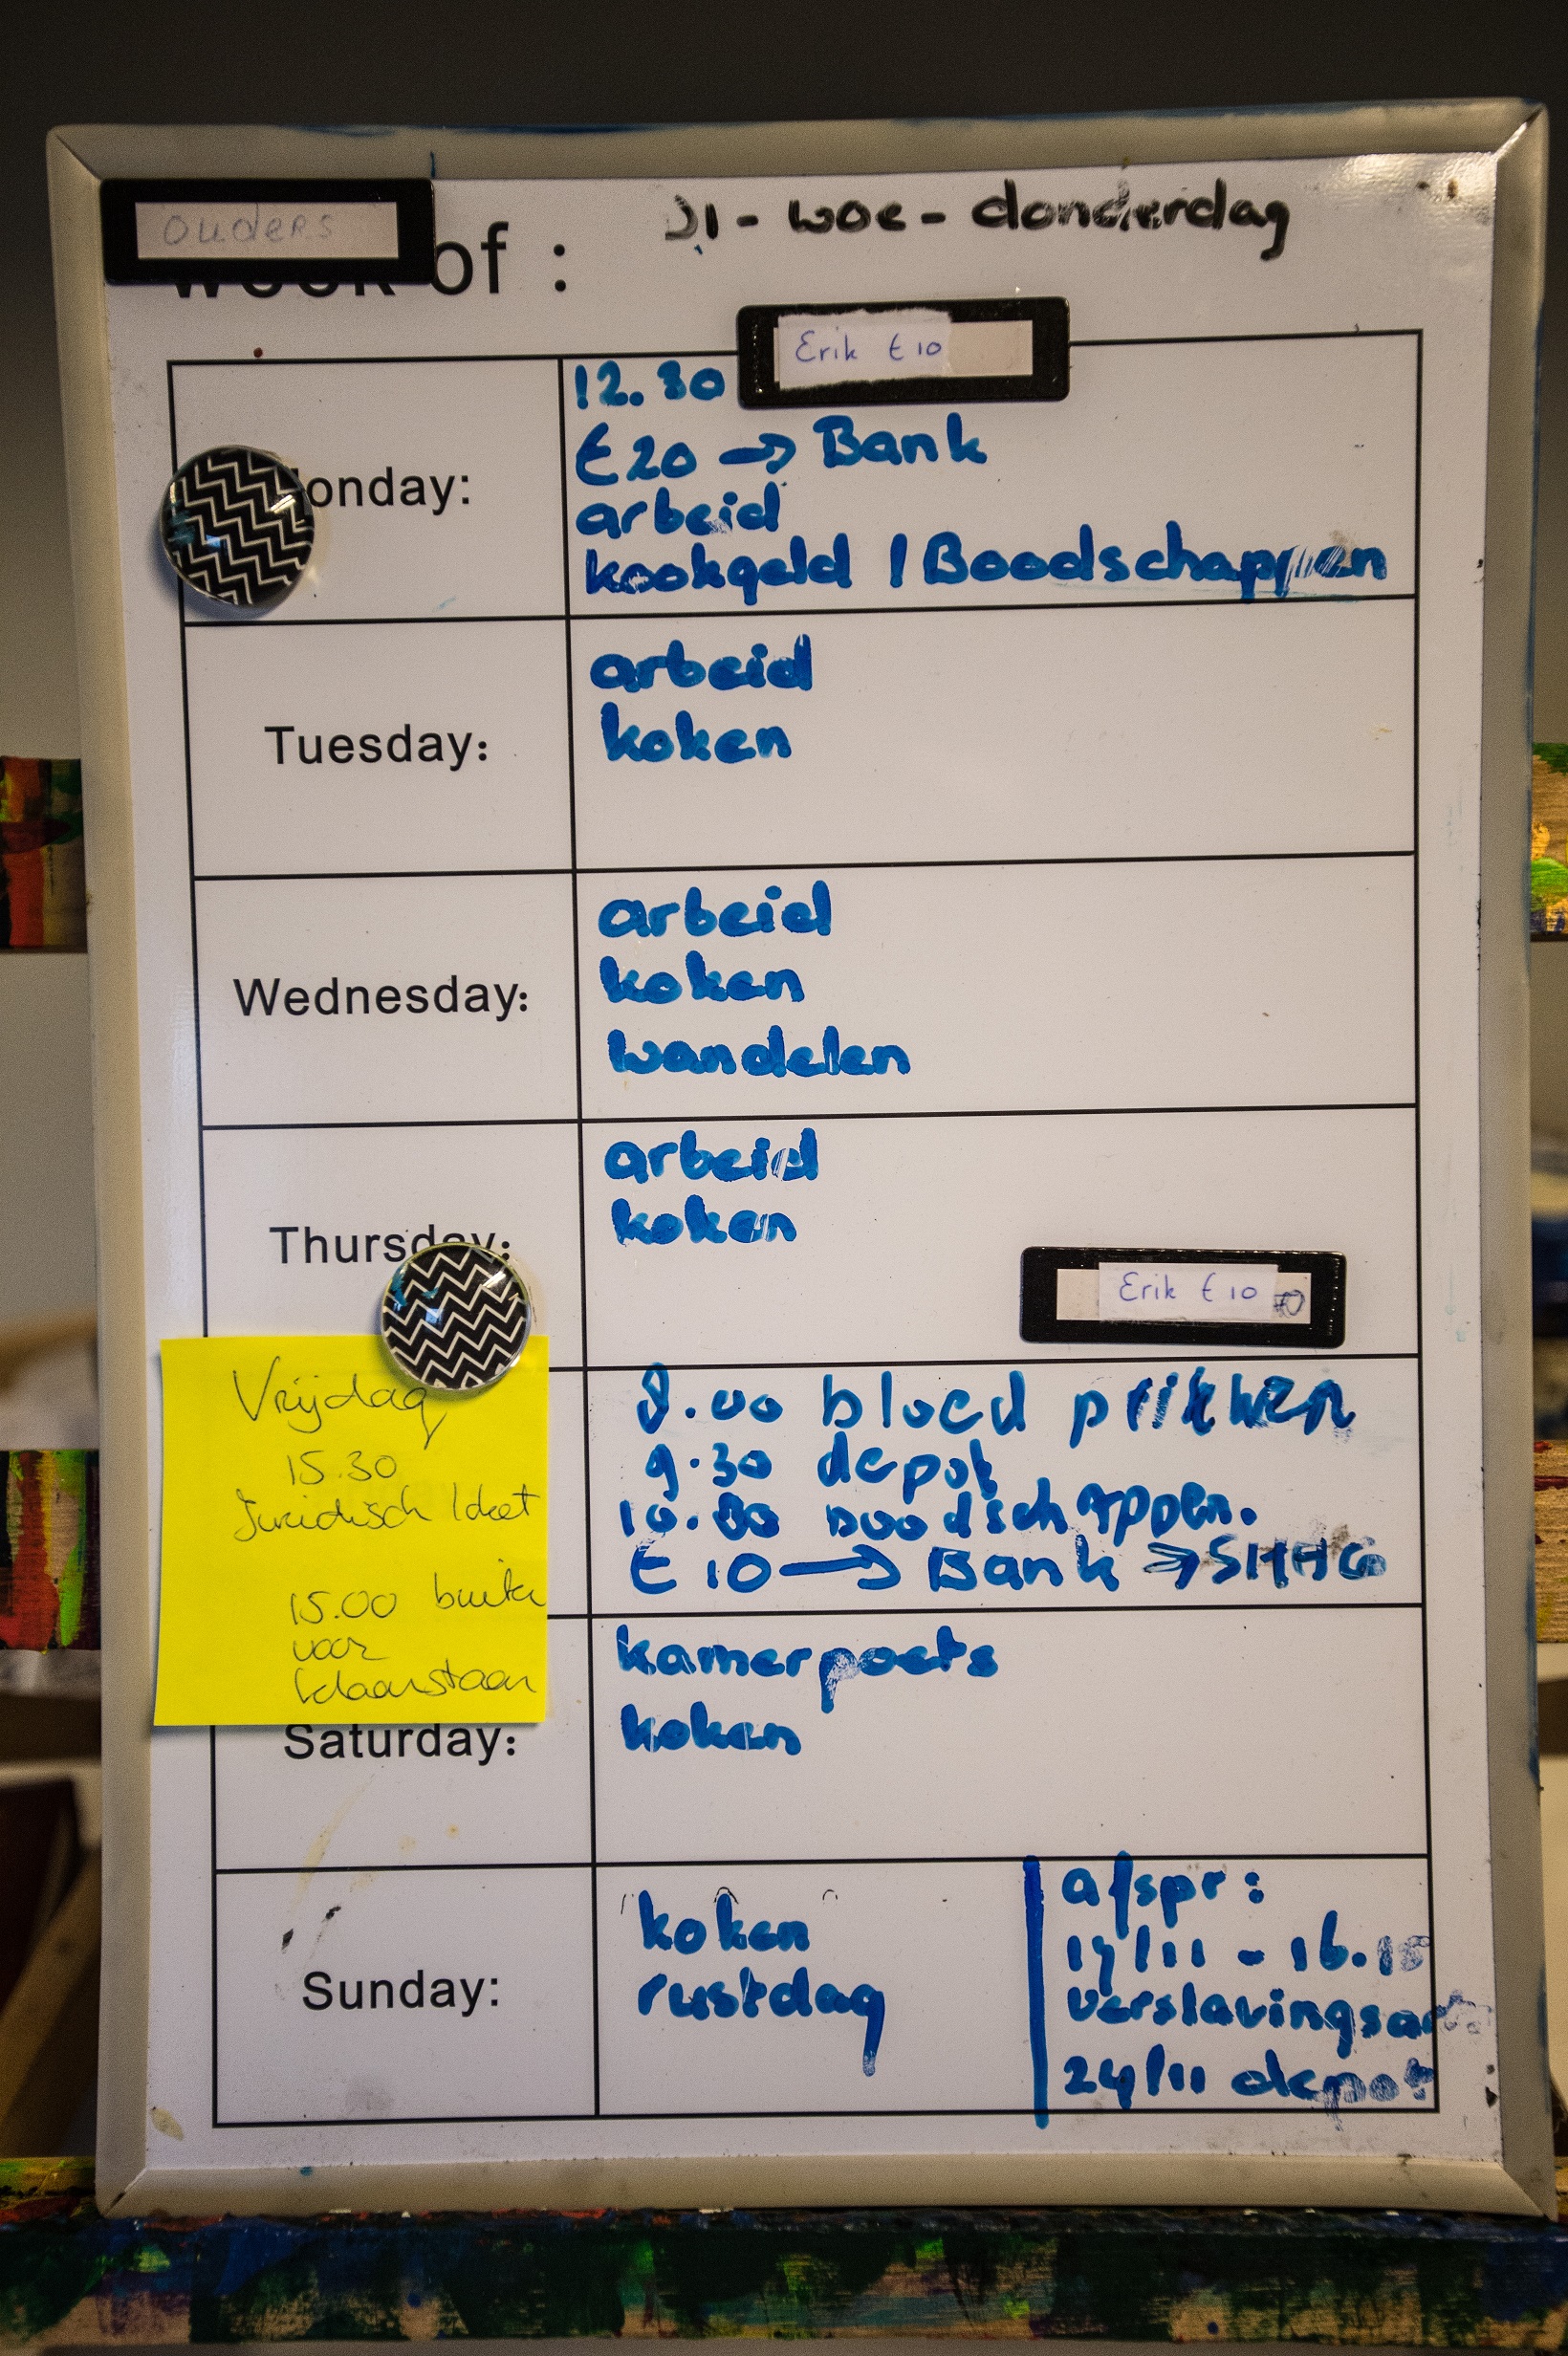 ouders
Week of :
DI - woe - donderdag
Erik €10
Monday:
12.30
€20 → Bank
arbeid
kookgeld / Boodschappen
Tuesday:
arbeid
koken
Wednesday:
arbeid
koken
wandelen
Thursday:
arbeid
koken
Erik €10
Vrijdag
15.30
Juridisch loket
15.00 buiten
voor
klaarstaan
8.00 bloed prikken
9.30 depot
boodschappen.
€10 → Bank →
Saturday:
kamerpoets
koken
Sunday:
koken
rustdag
afspr:
17/11 - 16.15
verslavingsarts
24/11 depot